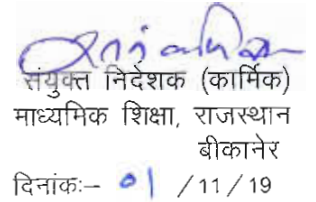 संयुक्त निदेशक (कार्मिक)
माध्यमिक शिक्षा, राजस्थान
बीकानेर
दिनांकः– 01 /11/19